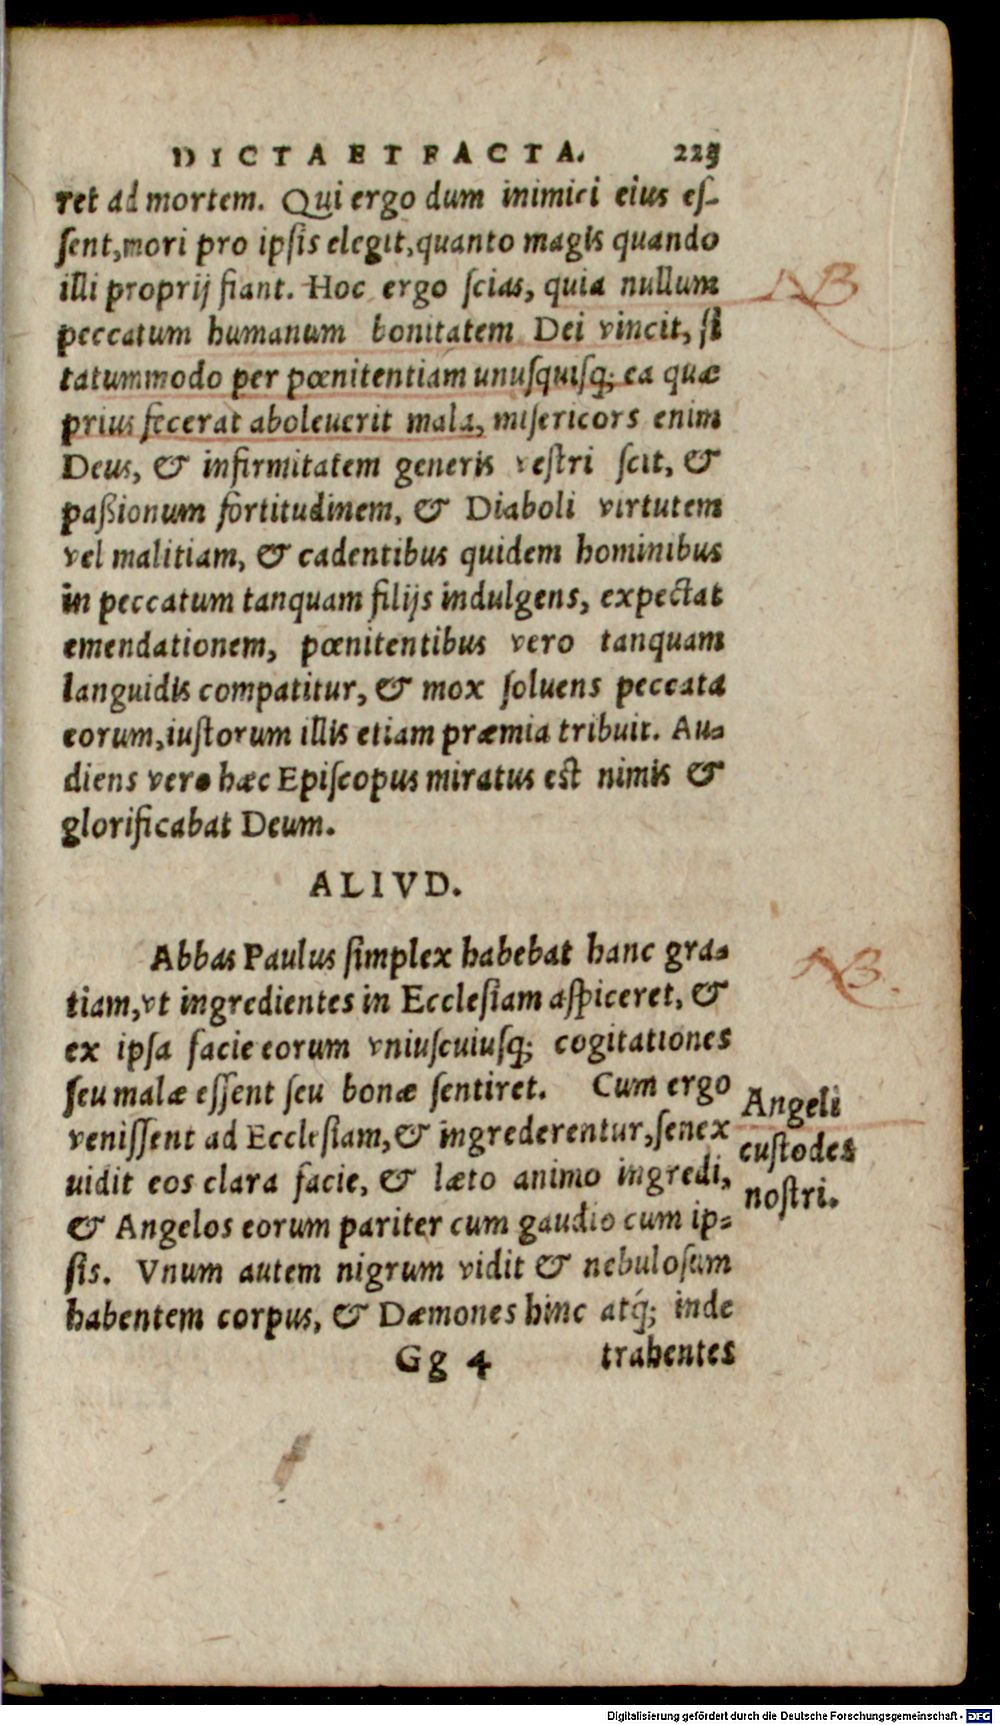 DICTA ET FACTA. 223
ret ad mortem. Qui ergo dum inimici eius es-
sent, mori pro ipsis elegit, quanto magis quando
illi proprij fiant. Hoc ergo scias, quia nullum
NB
peccatum humanum bonitatem Dei vincit, si
tatummodo per pœnitentiam unusquisq; ea quæ
prius fecerat aboleverit mala, misericors enim
Deus, & infirmitatem generis vestri scit, &
paßionum fortitudinem, & Diaboli virtutem
vel malitiam, & cadentibus quidem hominibus
in peccatum tanquam filijs indulgens, expectat
emendationem, pœnitentibus vero tanquam
languidis compatitur, & mox soluens peccata
eorum, iustorum illis etiam præmia tribuit. Au-
diens vero hæc Episcopus miratus est nimis &
glorificabat Deum.
ALIVD.
Abbas Paulus simplex habebat hanc gra-
NB.
tiam, vt ingredientes in Ecclesiam aspiceret, &
ex ipsa facie eorum vniuscuiusq; cogitationes
seu malæ essent seu bonæ sentiret. Cum ergo
venissent ad Ecclesiam, & ingrederentur, senex
uidit eos clara facie, & læto animo ingredi,
& Angelos eorum pariter cum gaudio cum ip-
sis. Vnum autem nigrum vidit & nebulosum
habentem corpus, & Dæmones hinc atq́; inde
Angeli
custodes
nostri.
Gg 4 trahentes
Digitalisierung gefördert durch die Deutsche Forschungsgemeinschaft - DFG